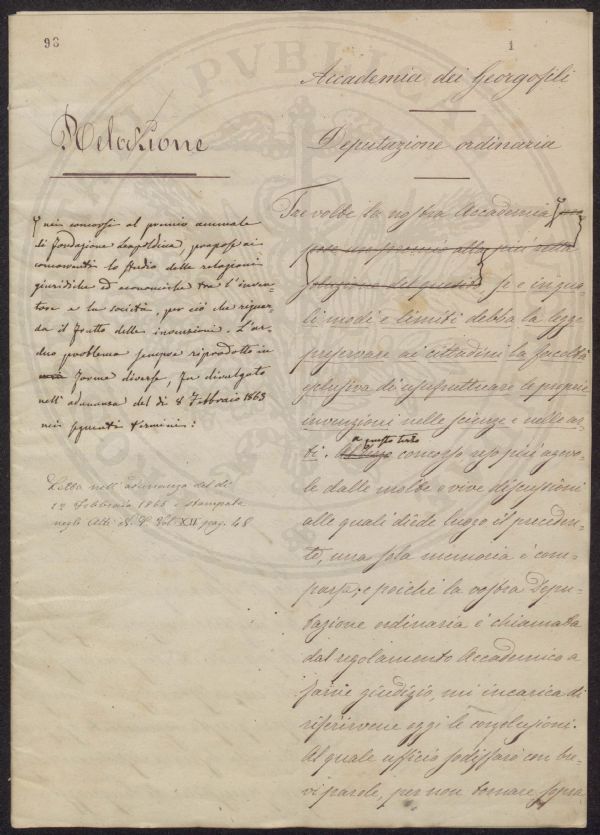 98
1
Accademia dei Georgofili
Relazione
Deputazione ordinaria
nei concorsi al premio annuale
di fondazione Leopoldina, propose ai
concorrenti lo studio delle relazioni
giuridiche ed economiche tra l'inven-
tore e la società, per ciò che riguar-
da il frutto delle invenzioni. L'ar-
duo problema sempre riprodotto in
forme diverse, fu divulgato
nell'adunanza del dì 8 Febbraio 1863
nei seguenti termini:
Letta nell'adunanza del dì
12 Febbraio 1865 e stampata
negli Atti Vol XII pag. 48
Tre volte la nostra Accademia
se e in qua-
li modi e limiti debba la legge
preservare ai cittadini la facoltà
esclusiva di usufruttuare le proprie
invenzioni nelle scienze e nelle ar-
ti. a questo terzo concorso reso più agevo-
le dalle molte e vive discussioni
alle quali diede luogo il preceden-
te, una sola memoria è com-
parsa; e poichè la vostra Depu-
tazione ordinaria è chiamata
dal regolamento Accademico a
farne giudizio, mi incarica di
riferirvene oggi le conclusioni.
Al quale ufficio sodisfarò con bre-
vi parole, per non tornare sopra